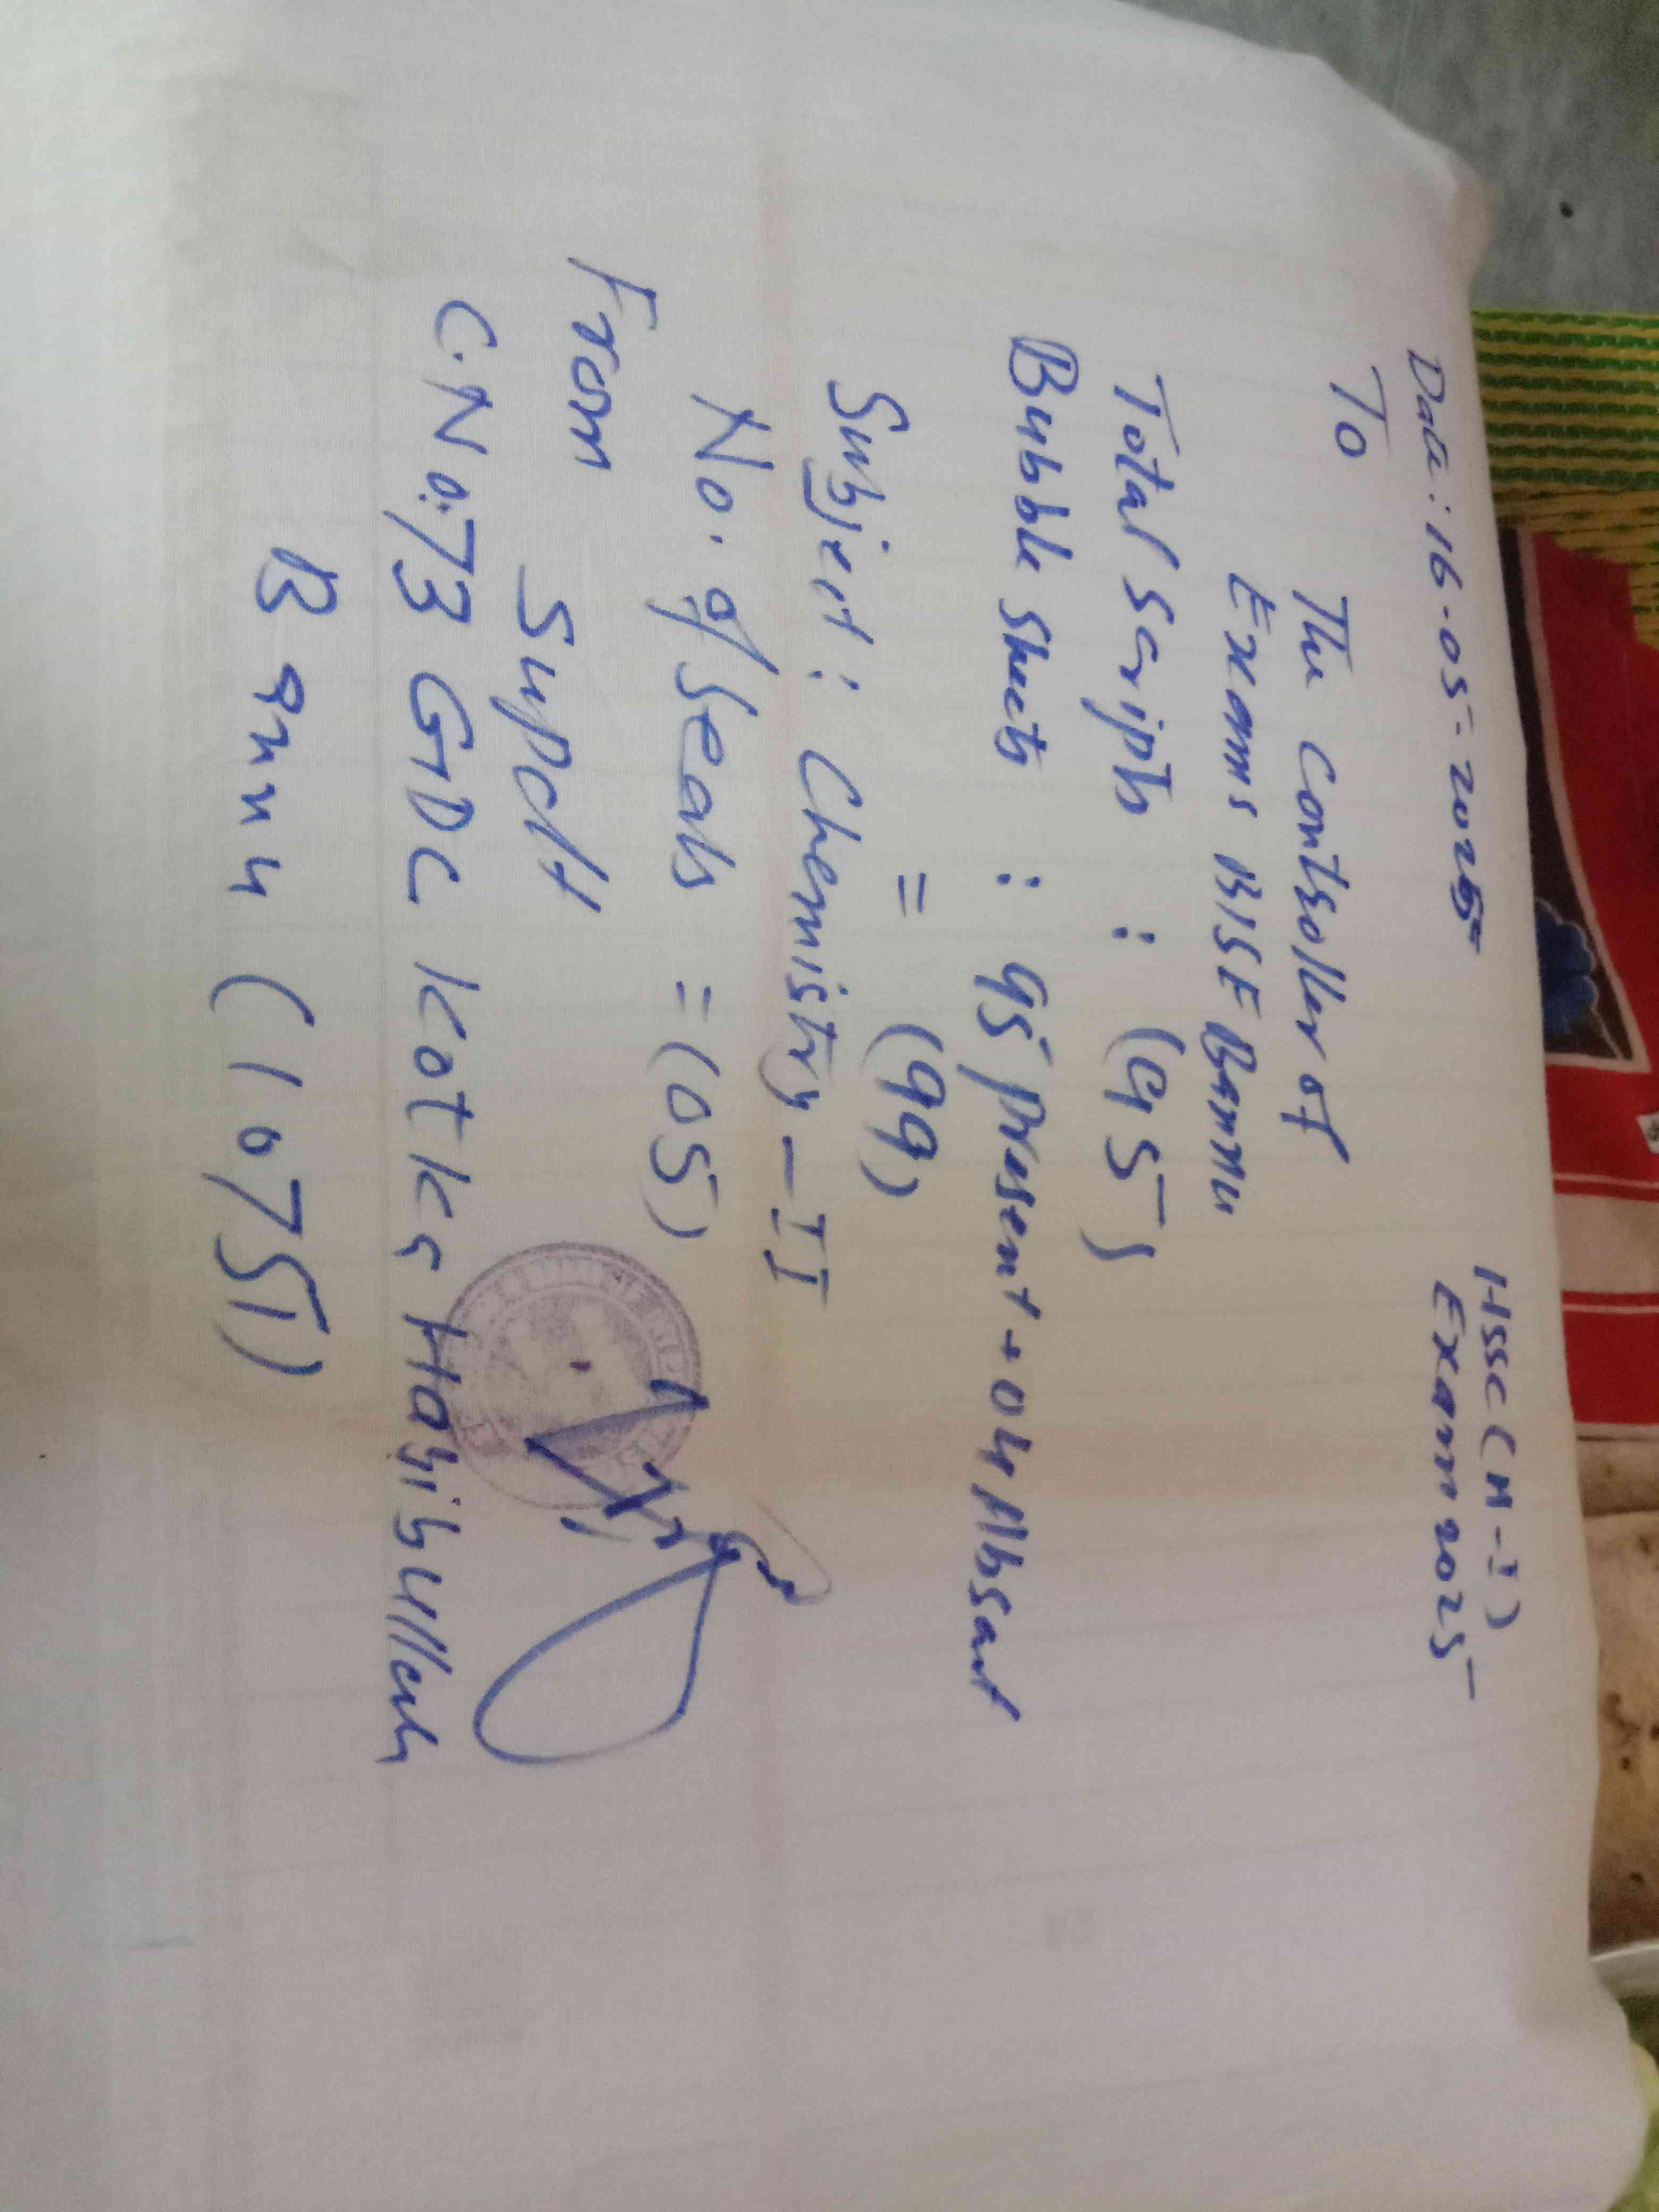 HSSC (A-I)
Exam 2025
Date: 16-05-2025
To
The Controller of
Exams BISE Bannu
Total Scripts : (95)
Bubble Sheets : 95 present + 04 Absant
= (99)
Subject: Chemistry-II
No. of Seals = (05)
From
Supdt
C.No.73 GDC Kotka Habibullah
Bannu (10751)